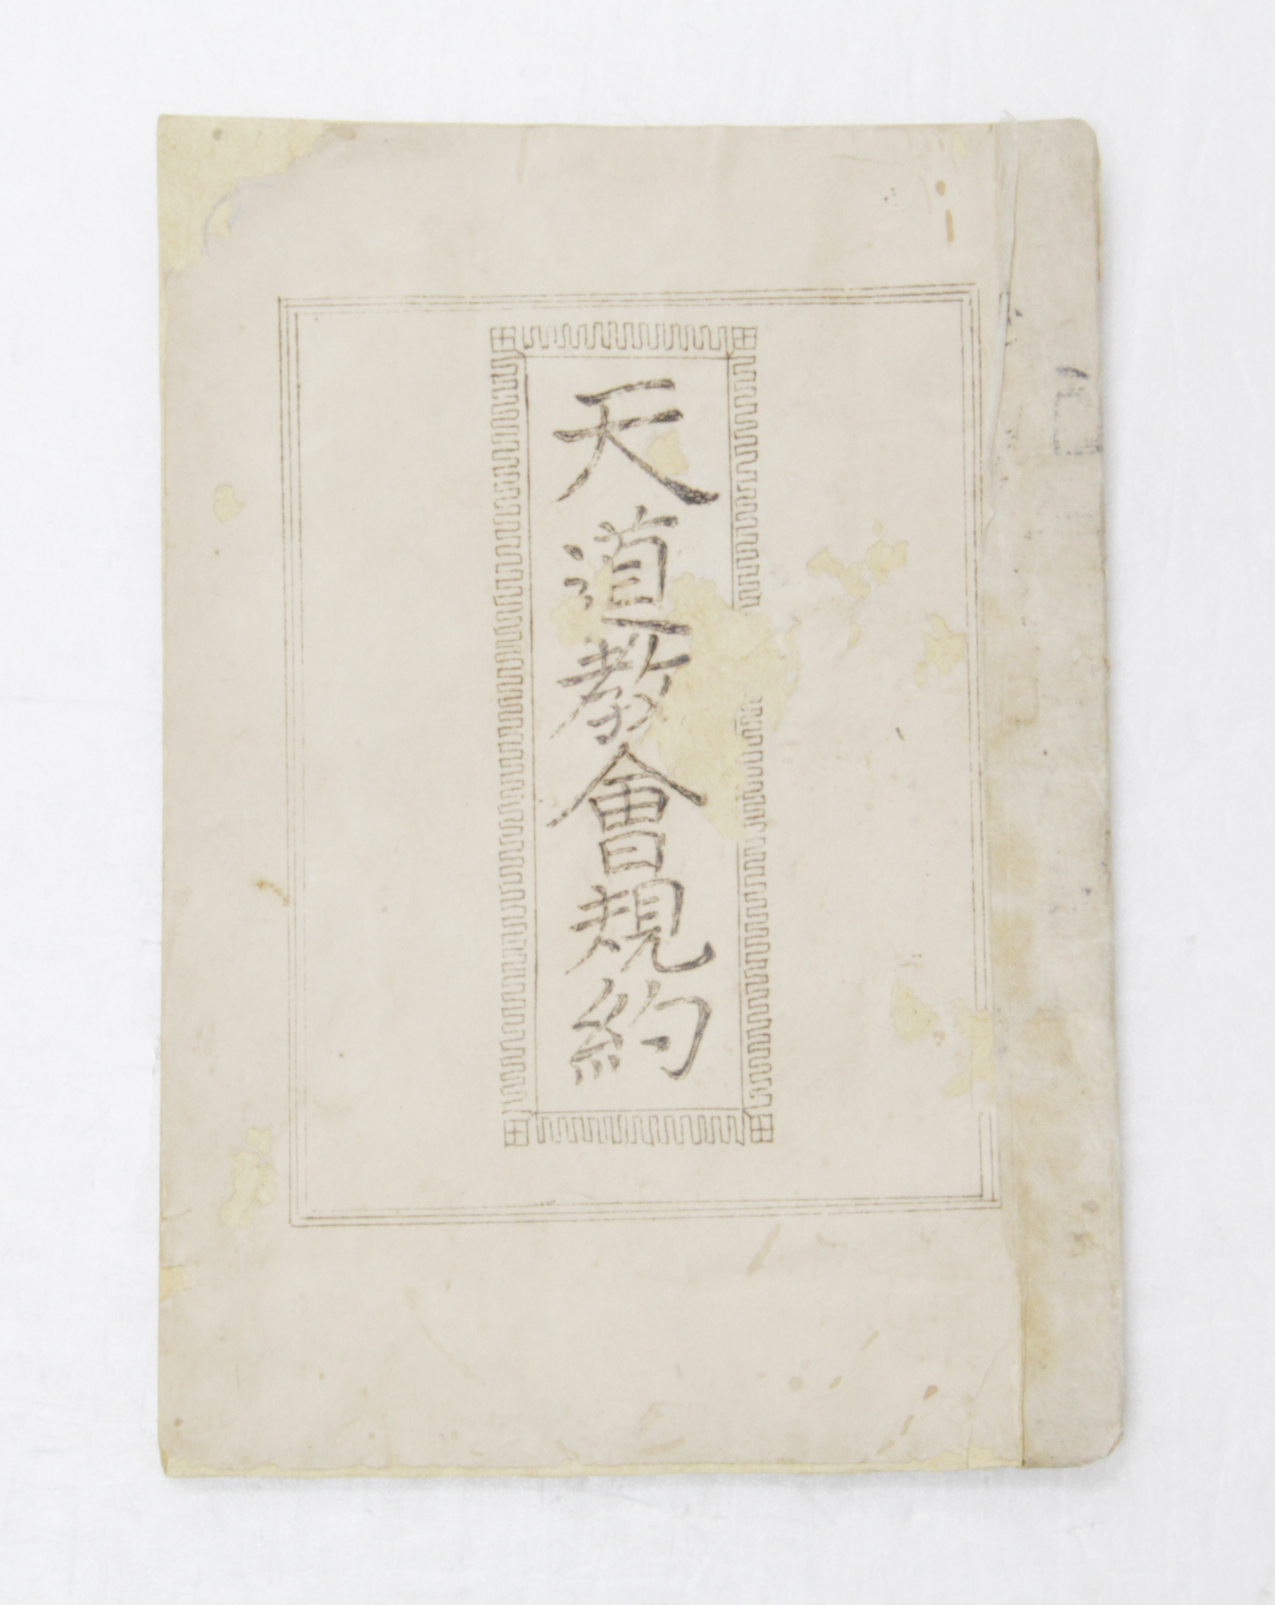 天道教會規約